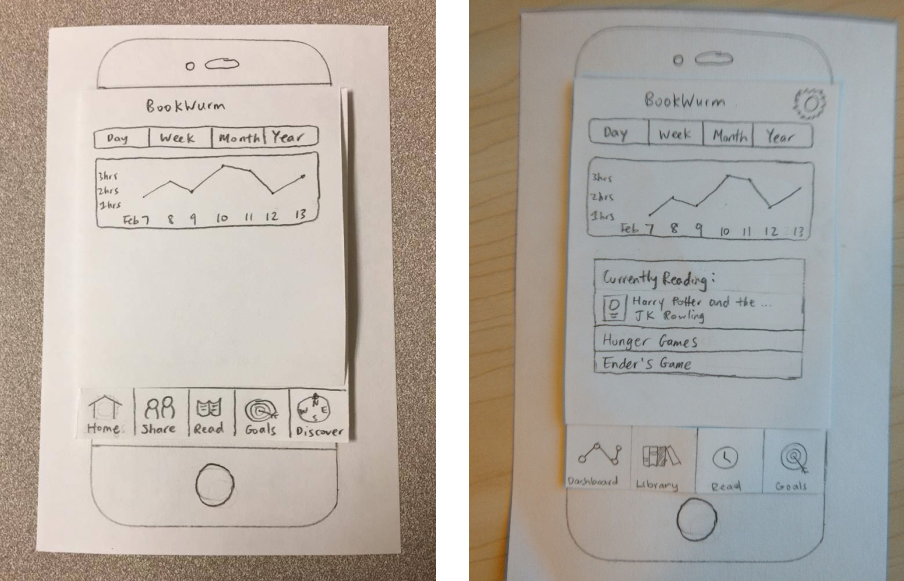 BookWurm
Day Week Month Year
3hrs
2hrs
1hrs
Feb 7 8 9 10 11 12 13
Home Share Read Goals Discover
N
W E
S
BookWurm
Day Week Month Year
3hrs
2hrs
1hrs
Feb 7 8 9 10 11 12 13
Currently Reading:
Harry Potter and the ...
JK Rowling
Hunger Games
Ender's Game
Dashboard Library Read Goals